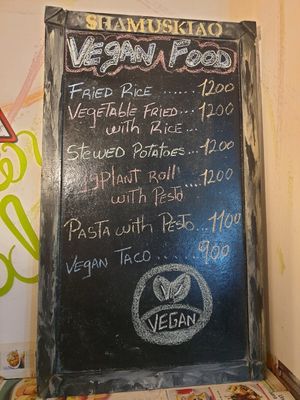 SHAMUSKIAO
VEGAN FOOD
FRIED RICE ...... 1200
VEGETABLE FRIED... 1200
WITH RICE...
STEWED POTATOES... 1200
EGGPLANT ROLL ... 1200
WITH PESTO
PASTA WITH PESTO... 1100
VEGAN TACO...... 900
VEGAN